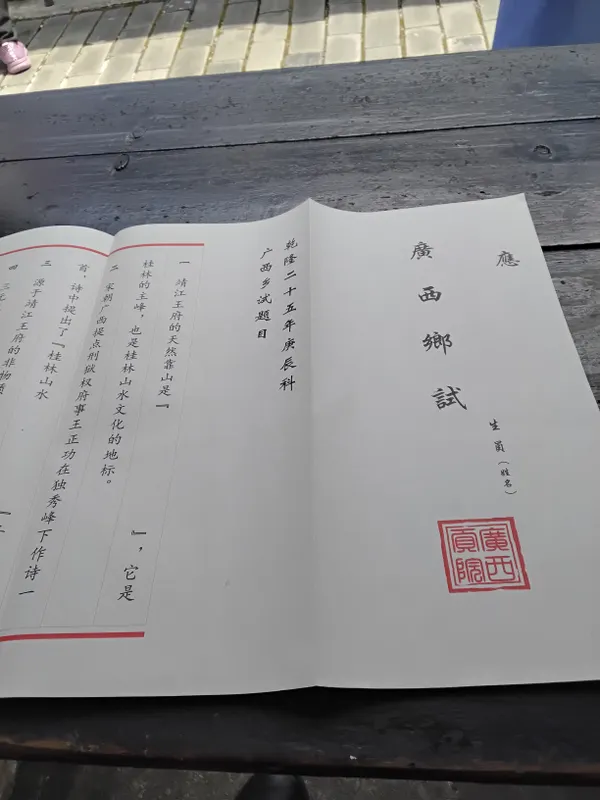 應
廣西鄉試
生員（姓名）
廣西貢院
乾隆二十五年庚辰科
广西乡试题目
一 靖江王府的天然靠山是『 』，它是
桂林的主峰，也是桂林山水文化的地标。
二 宋朝广西提点刑狱权府事王正功在独秀峰下作诗一
首，诗中提出了『桂林山水
三 源于靖江王府的非物质
四 三元